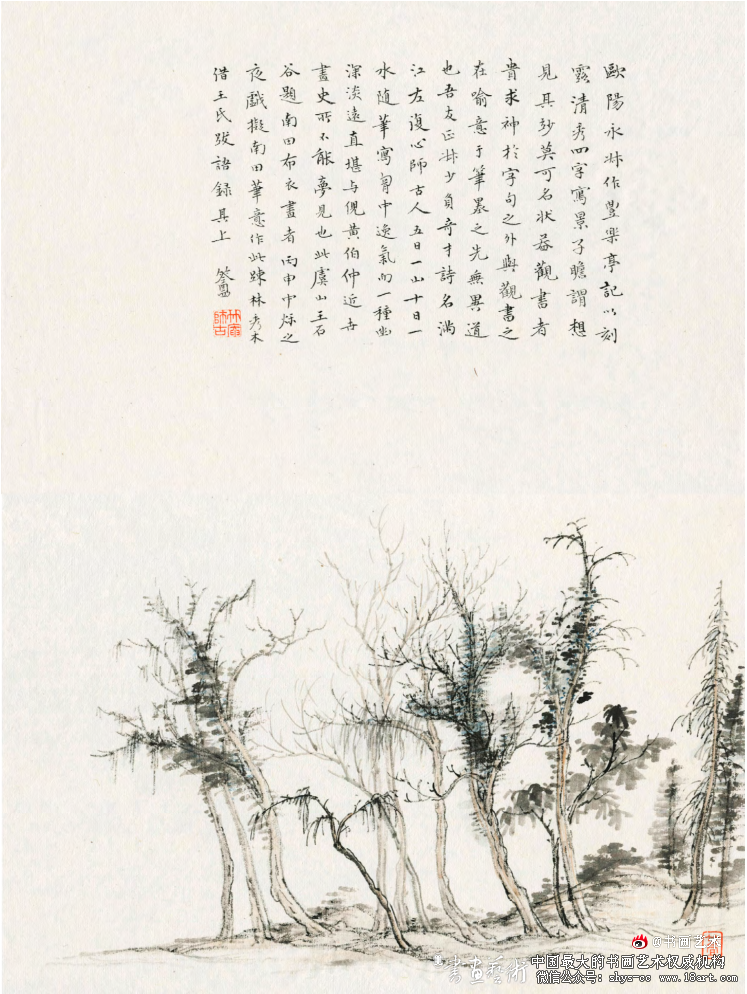 歐陽永叔作豐樂亭記以刻
露清秀四字寫景子瞻謂想
見其妙莫可名狀蓋觀書者
貴求神於字句之外與觀畫之
在喻意于筆墨之先無異道
也吾友正叔少負奇才詩名滿
江左復心師古人五日一山十日一
水隨筆寫胷中逸氣而一種幽
深淡遠直堪与倪黃伯仲近世
畫史所不能夢見也此虞山王石
谷題南田布衣畫者丙申中烁之
夜戲擬南田筆意作此踈林秀木
借王氏跋語錄其上
@书画艺术
書画藝術 中国最大的书画艺术权威机构
微信公众号: shys-cc www.18art.com